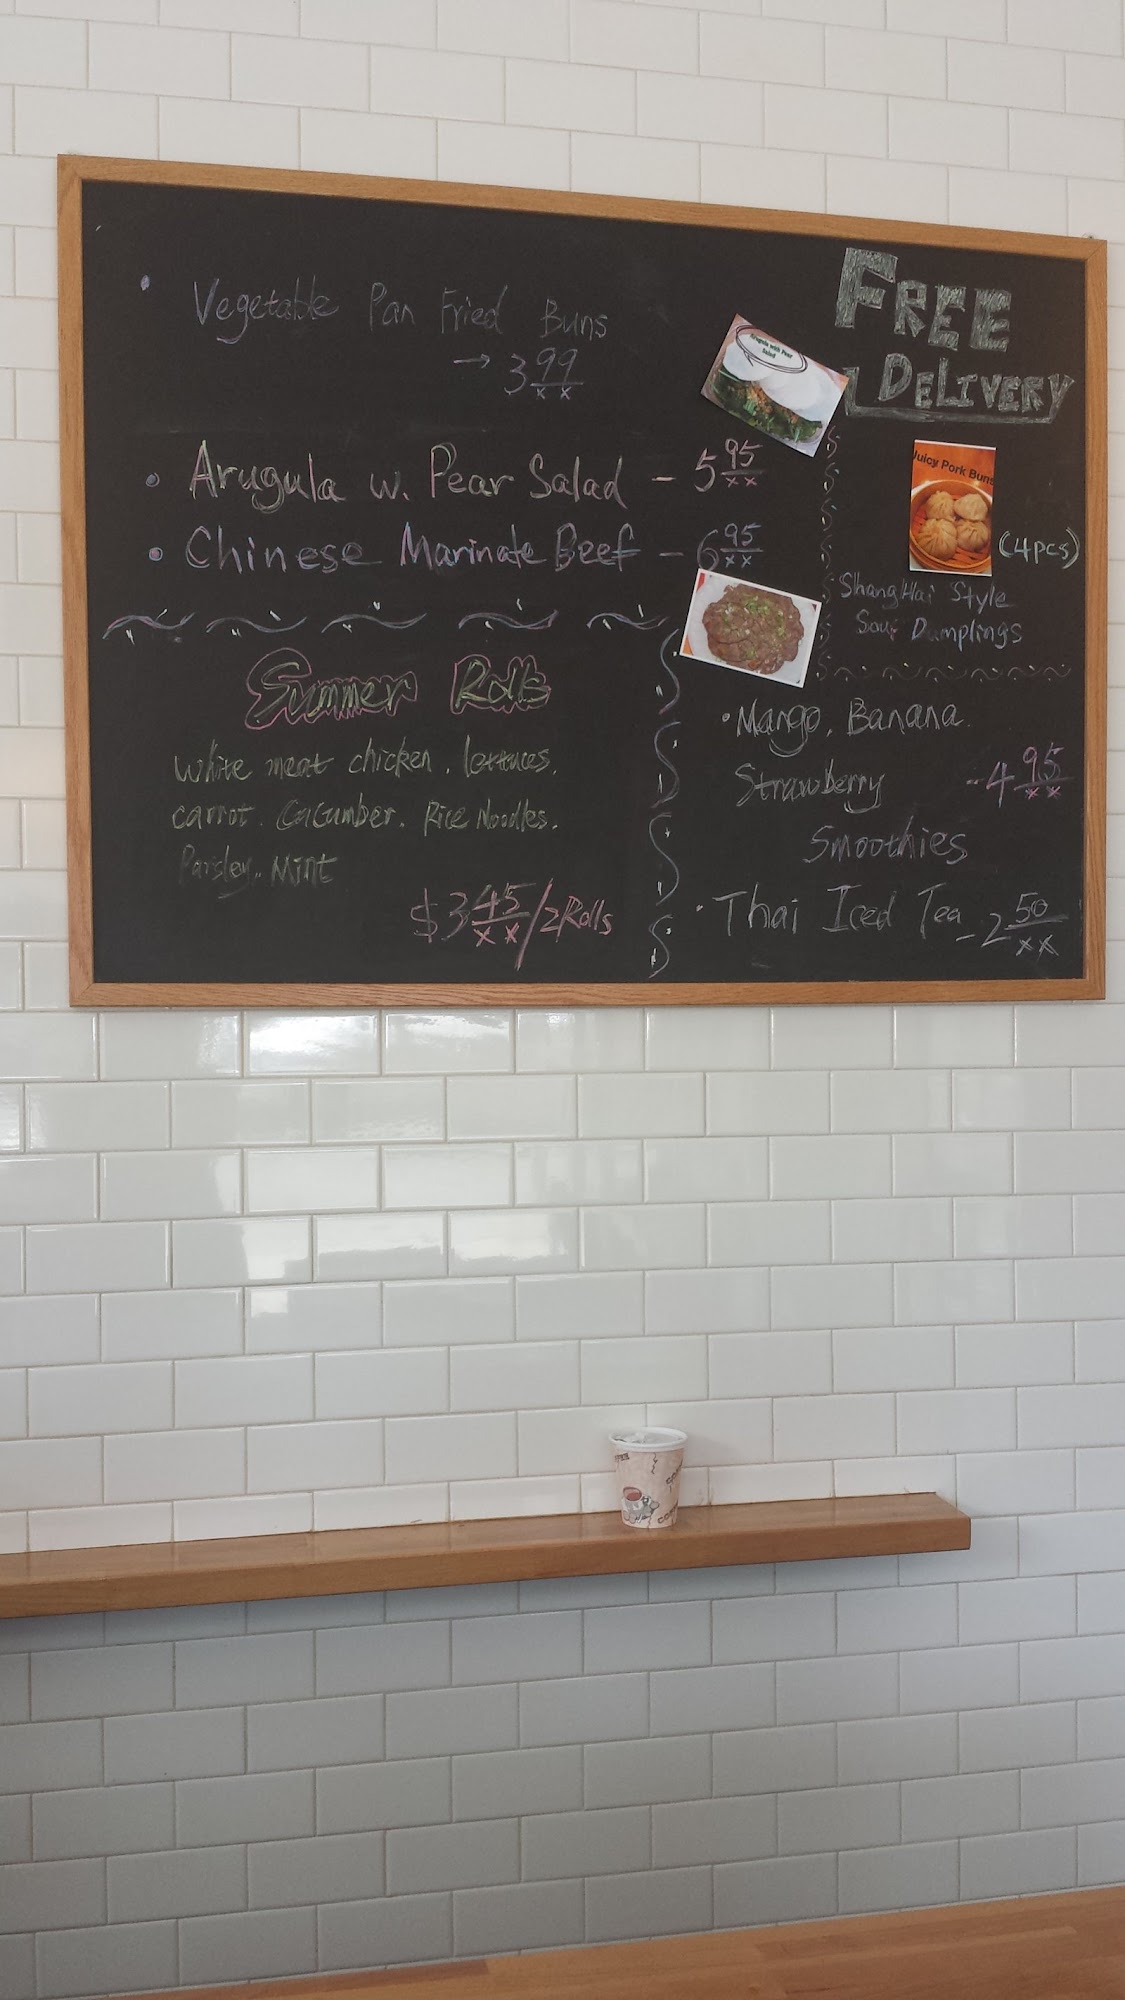 • Vegetable Pan Fried Buns
→ 3 99/xx
• Arugula w. Pear Salad - 5 95/xx
• Chinese Marinate Beef - 6 95/xx
Summer Rolls
white meat chicken, lettuces,
carrot, Cucumber, Rice Noodles,
Parsley, Mint
$3 45/xx /2 Rolls
FREE
DELIVERY
Arugula with Pear
Salad
Juicy Pork Buns
(4pcs)
ShangHai Style
Soup Dumplings
• Mango, Banana
Strawberry - 4 95/xx
Smoothies
• Thai Iced Tea - 2 50/xx